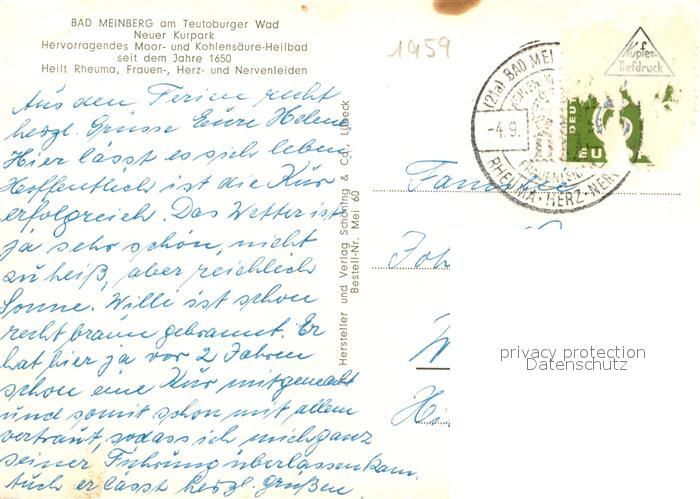 BAD MEINBERG am Teutoburger Wad
Neuer Kurpark
Hervorragendes Moor- und Kohlensäure-Heilbad
seit dem Jahre 1650
Heilt Rheuma, Frauen-, Herz- und Nervenleiden
Aus den Ferien recht
herzl. Grüsse Eure Helene
Hier lässt es sich leben
Hoffentlich ist die Kur
erfolgreich. Das Wetter ist
ja sehr schön, nicht
zu heiß, aber reichlich
Sonne. Willi ist schon
recht braun gebrannt. Er
hat hier ja vor 2 Jahren
schon eine Kur mitgemacht
und somit schon mit allem
vertraut, sodass ich mich ganz
seiner Führung überlassen kann.
Auch er lässt herzl. grüßen
Hersteller und Verlag Schöning & Co., Lübeck
Bestell-Nr. Mei 60
1959
(21a) BAD MEI
-4.9.
RHEUMA·HERZ·NER
Kupfer-
Tiefdruck
DEUT
EUROP
Familie
Joh
W
Hi
privacy protection
Datenschutz